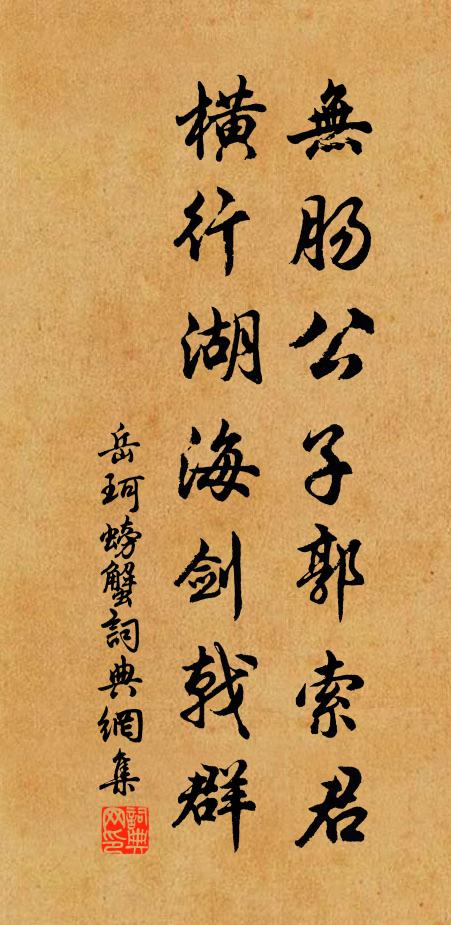 無肠公子郭索君
横行湖海剑戟群
岳珂螃蟹詞典網集
詞典网印